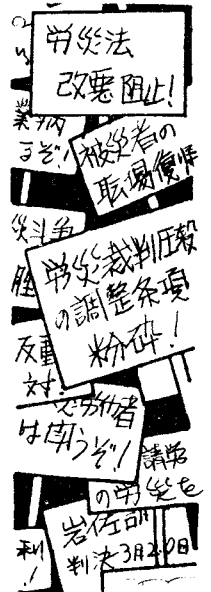 労災法
改悪阻止!
業病
るぞ!
被災者の
職場復帰
災斗争
労災裁判圧殺
の調整条項
粉砕!
反動
対!
労働者
は斗うぞ!
請労
の労災を
岩佐訴
判決3月20日
利
!